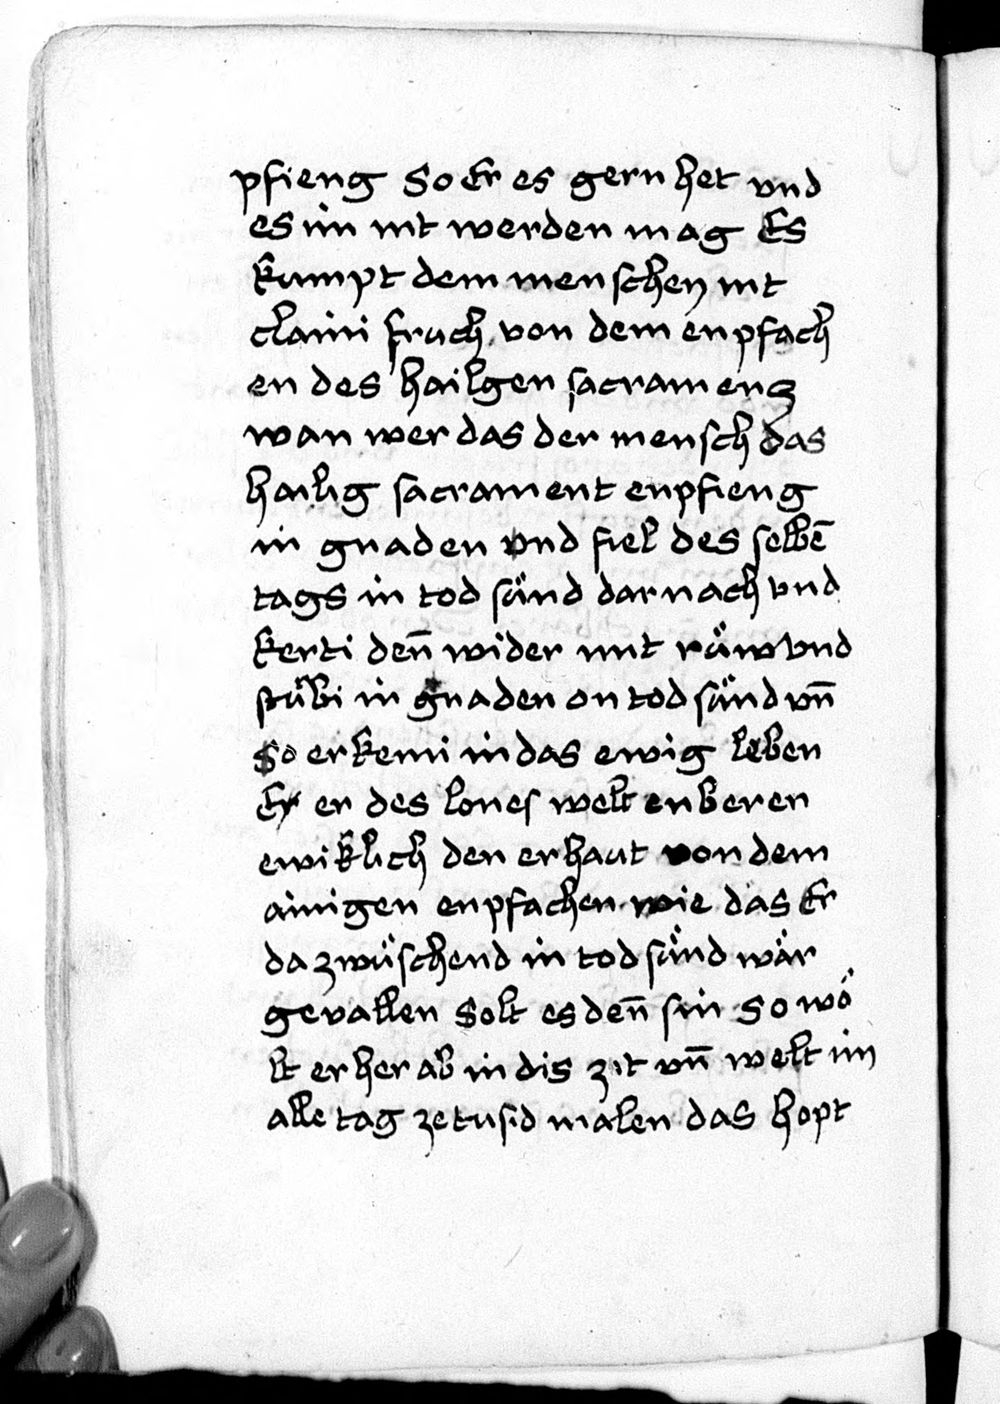 pfieng So Er es gern het vnd
es im nit werden mag Es
kumpt dem menschen nit
claini fruch von dem enpfach
en des hailgen sacramencz
wan wer das der mensch das
hailig sacrament enpfieng
in gnaden vnd fiel des selbē
tags in tod sünd darnach vnd
kerti den̄ wider mit rüw vnd
stürbi in gnaden on tod sünd vn̄
So er kemi in das ewig leben
Er er des lones welt enberen
ewiklich den er haut von dem
ainigen enpfachen wie das Er
da zwüschend in tod sünd wär
gevallen Solt es den̄ sin So wö
lt er her ab in dis zit vn̄ welt im
alle tag ze tusid malen das hopt